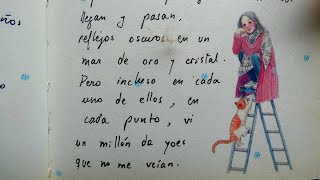 ños
llegan y pasan,
reflejos oscuros en un
mar de oro y cristal.
Pero incluso en cada
uno de ellos, en
cada punto, vi
un millón de yoes
que no me veían.